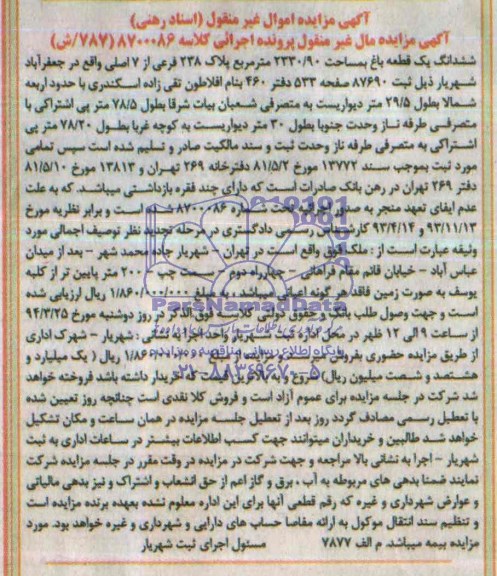 آگهی مزایده اموال غیر منقول (اسناد رهنی)
آگهی مزایده مال غیر منقول پرونده اجرائی کلاسه ۸۷۰۰۰۸۶ (۷۸۷/ش)
ششدانگ یک قطعه باغ بمساحت ۲۲۳۰/۹۰ مترمربع پلاک ۲۳۸ فرعی از ۷ اصلی واقع در جعفرآباد
شهریار ذیل ثبت ۸۷۶۹۰ صفحه ۵۳۳ دفتر ۴۶۰ بنام افلاطون تقی زاده اسکندری با حدود اربعه
شمالا بطول ۲۹/۵ متر دیواریست به متصرفی شعبان بیات شرقا بطول ۷۸/۵ متر پی اشتراکی با
متصرفی طرفه ناز وحدت جنوبا بطول ۳۰ متر دیواریست به کوچه غربا بطول ۷۸/۲۰ متر پی
اشتراکی به متصرفی طرفه ناز وحدت ثبت و سند مالکیت صادر و تسلیم شده است سپس تمامی
مورد ثبت بموجب سند ۱۳۷۷۲ مورخ ۸۱/۵/۲ دفترخانه ۲۶۹ تهران و ۱۳۸۱۳ مورخ ۸۱/۵/۱۰
دفتر ۲۶۹ تهران در رهن بانک صادرات است که دارای چند فقره بازداشتی میباشد. که به علت
عدم ایفای تعهد منجر به صدور تحت شماره ۸۷۰۰۰۸۶ است و برابر نظریه مورخ
۹۳/۱۱/۱۳ و ۹۳/۴/۱۴ کارشناس رسمی دادگستری در مرحله تجدید نظر توصیف اجمالی مورد
وثیقه عبارت است از : ملک فوق واقع است در تهران – شهریار جاده محمد شهر – بعد از میدان
عباس آباد – خیابان قائم مقام فراهانی – چهارراه دوم – سمت چپ – ۲۰۰ متر پایین تر از کلبه
یوسف به صورت زمین فاقد هر گونه اعیانی میباشد. به مبلغ ۱/۸۶۰/۰۰۰/۰۰۰ ریال ارزیابی شده
است و جهت وصول طلب بانک و حقوق دولتی کلاسه فوق الذکر در روز دوشنبه مورخ ۹۴/۳/۲۵
از ساعت ۹ الی ۱۲ ظهر در محل اداره ثبت شهریار واحد اجرا به نشانی : شهریار – شهرک اداری
از طریق مزایده حضوری بفروش میرسد و مزایده از مبلغ ریال ( یک میلیارد و
هشتصد و شصت میلیون ریال) شروع و به بالاترین قیمت که خریدار داشته باشد فروخته خواهد
شد شرکت در جلسه مزایده برای عموم آزاد است و فروش کلا نقدی است چنانچه روز تعیین شده
با تعطیل رسمی مصادف گردد روز بعد از تعطیل جلسه مزایده در همان ساعت و مکان تشکیل
خواهد شد طالبین و خریداران میتوانند جهت کسب اطلاعات بیشتر در ساعات اداری به ثبت
شهریار – اجرا به نشانی بالا مراجعه و جهت شرکت در مزایده در وقت مقرر در جلسه مزایده شرکت
نمایند ضمنا بدهی های مربوطه به آب ، برق و گاز اعم از حق انشعاب و اشتراک و نیز بدهی مالیاتی
و عوارض شهرداری و غیره که رقم قطعی آنها برای این اداره معلوم نشده بعهده برنده مزایده است
و تنظیم سند انتقال موکول به ارائه مفاصا حساب های دارایی و شهرداری و غیره خواهد بود. مورد
مزایده بیمه میباشد. م الف ۷۸۷۷ مسئول اجرای ثبت شهریار
ParsNamadData
پایگاه اطلاع رسانی مناقصه و مزایده
۰۲۱-۸۸۳۴۹۶۷۰-۵